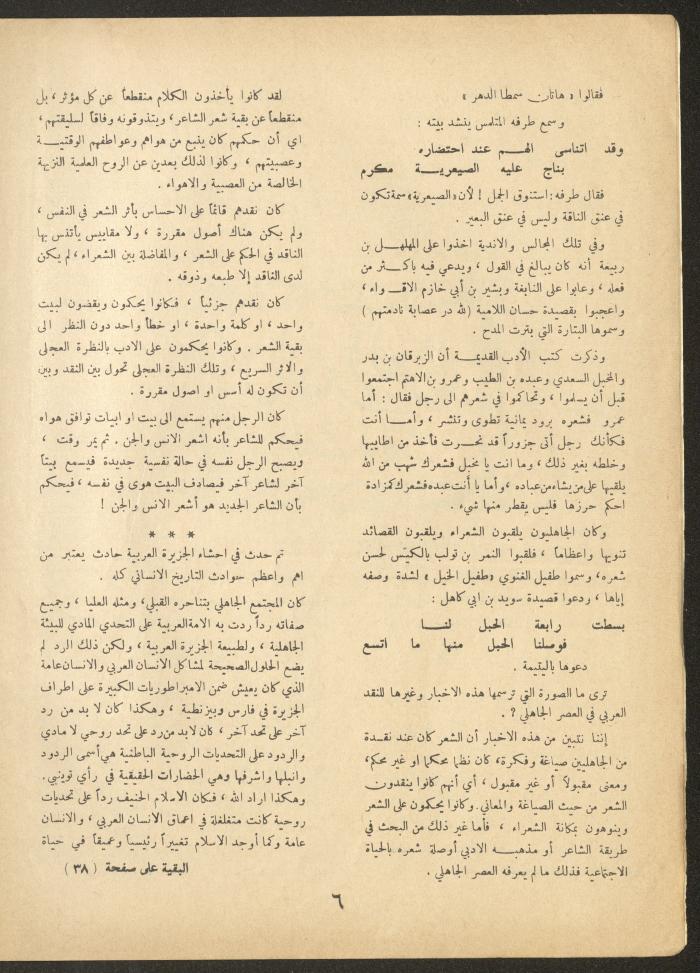 فقالوا « هاتان سمطا الدهر »
وسمع طرفه المتلمس ينشد بيته :
وقد اتناسى الهم عند احتضاره
بناج عليه الصيعرية مكرم
فقال طرفه: استنوق الجمل ! لأن «الصيعرية» سمة تكون
في عنق الناقة وليس في عنق البعير .
وفي تلك المجالس والاندية اخذوا على المهلهل بن
ربيعة أنه كان يبالغ في القول ، ويدعي فيه باكثر من
فعله ، وعابوا على النابغة وبشير بن أبي خازم الاقواء ،
واعجبوا بقصيدة حسان اللامية ( لله در عصابة نادمتهم )
وسموها البتارة التي بترت المدح .
وذكرت كتب الأدب القديمة أن الزبرقان بن بدر
والمخبل السعدي وعبده بن الطيب وعمرو بن الاهتم اجتمعوا
قبل أن يسلموا ، وتحاكموا في شعرهم الى رجل فقال : أما
عمرو فشعره برود يمانية تطوى وتنشر ، وأما أنت
فكأنك رجل أتى جزوراً قد نحرت فأخذ من اطايبها
وخلطه بغير ذلك ، وما انت يا مخبل فشعرك شهب من الله
يلقيها على من يشاء من عباده ، وأما يا أنت عبده فشعرك كمزادة
احكم حرزها فليس يقطر منها شيء .
وكان الجاهليون يلقبون الشعراء ويلقبون القصائد
تنويها واعظاماً ، فلقبوا النمر بن تولب بالكيّس لحسن
شعره، وسموا طفيل الغنوي « طفيل الخيل » لشدة وصفه
إياها ، ودعوا قصيدة سويد بن ابي كاهل :
بسطت رابعة الحبل لنا
فوصلنا الحبل منها ما اتسع
دعوها باليتيمة .
ترى ما الصورة التي ترسمها هذه الاخبار وغيرها للنقد
العربي في العصر الجاهلي ؟ .
إننا نتبين من هذه الاخبار أن الشعر كان عند نقدة
من الجاهليين صياغة وفكرة، كان نظما محكما او غير محكم،
ومعنى مقبولاً أو غير مقبول ، أي أنهم كانوا ينقدون
الشعر من حيث الصياغة والمعاني. وكانوا يحكمون على الشعر
وينوهون بمكانة الشعراء ، فأما غير ذلك من البحث في
طريقة الشاعر أو مذهبه الادبي أوصلة شعره بالحياة
الاجتماعية فذلك ما لم يعرفه العصر الجاهلي .
لقد كانوا يأخذون الكلام منقطعاً عن كل مؤثر ، بل
منقطعاً عن بقية شعر الشاعر ، ويتذوقونه وفاقاً لسليقتهم ،
اي أن حكمهم كان ينبع من هواهم وعواطفهم الوقتية
وعصبيتهم ، وكانوا لذلك بعدين عن الروح العلمية النزيهة
الخالصة من العصبية والاهواء .
كان نقدهم قائماً على الاحساس بأثر الشعر في النفس ،
ولم يكن هناك أصول مقررة ، ولا مقاييس يأتنس بها
الناقد في الحكم على الشعر ، والمفاضلة بين الشعراء ، لم يكن
لدى الناقد إلا طبعه وذوقه .
كان نقدهم جزئياً ، فكانوا يحكمون ويقضون لبيت
واحد ، او كلمة واحدة ، او خطأ واحد دون النظر الى
بقية الشعر . وكانوا يحكمون على الادب بالنظرة العجلى
والاثر السريع ، وتلك النظرة العجلى تحول بين النقد وبين
أن تكون له أسس او اصول مقررة .
كان الرجل منهم يستمع الى بيت او ابيات توافق هواه
فيحكم للشاعر بأنه اشعر الانس والجن . ثم يمر وقت ،
ويصبح الرجل نفسه في حالة نفسية جديدة فيسمع بيتاً
آخر لشاعر آخر فيصادف البيت هوى في نفسه ، فيحكم
بأن الشاعر الجديد هو أشعر الانس والجن !
* * *
تم حدث في احشاء الجزيرة العربية حادث يعتبر من
اهم واعظم حوادث التاريخ الانساني كله .
كان المجتمع الجاهلي بتناحره القبلي، ومثله العليا ، وجميع
صفاته رداً ردت به الامة العربية على التحدي المادي للبيئة
الجاهلية ، ولطبيعة الجزيرة العربية ، ولكن ذلك الرد لم
يضع الحلول الصحيحة لمشاكل الانسان العربي والانسان عامة
الذي كان يعيش ضمن الامبراطوريات الكبيرة على اطراف
الجزيرة في فارس وبيزنطية ، وهكذا كان لا بد من رد
آخر على تحد آخر ، كان لابد من رد على تحد روحي لا مادي
والردود على التحديات الروحية الباطنية هي أسمى الردود
وانبلها واشرفها وهي الحضارات الحقيقية في رأي توينبي.
وهكذا اراد الله ، فكان الاسلام الحنيف رداً على تحديات
روحية كانت متغلغلة في اعماق الانسان العربي ، والانسان
عامة وكما أوجد الاسلام تغييراً رئيسياً وعميقاً في حياة
البقية على صفحة ( ٣٨ )
٦